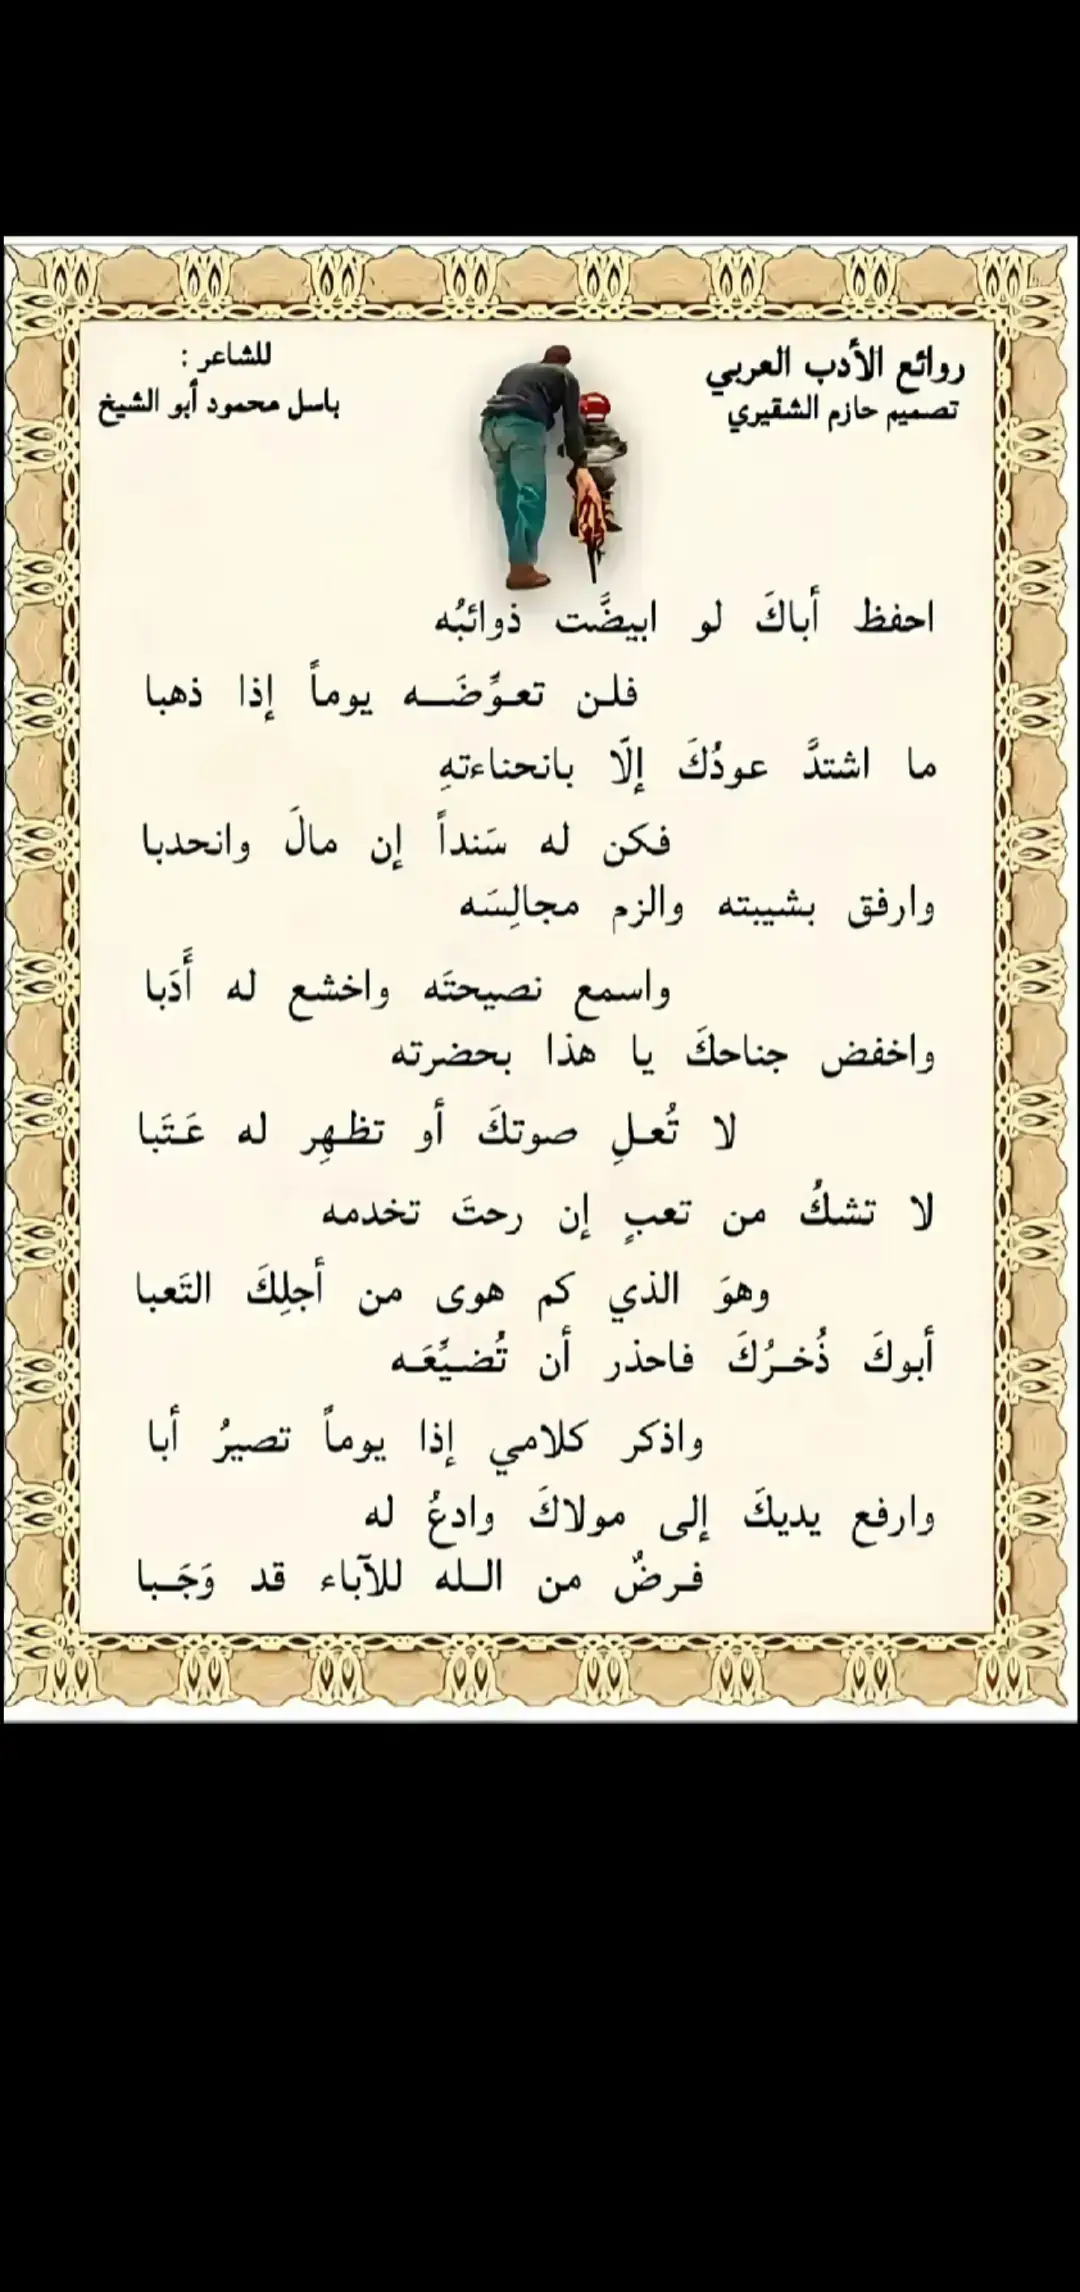 روائع الأدب العربي
تصميم حازم الشقيري
للشاعر :
باسل محمود أبو الشيخ
احفظ أباكَ لو ابيضَّت ذوائبُه
فلن تعوِّضَه يوماً إذا ذهبا
ما اشتدَّ عودُكَ إلّا بانحناءتهِ
فكن له سَنداً إن مالَ وانحدبا
وارفق بشيبته والزم مجالِسَه
واسمع نصيحتَه واخشع له أَدَبا
واخفض جناحكَ يا هذا بحضرته
لا تُعلِ صوتكَ أو تظهِر له عَتَبا
لا تشكُ من تعبٍ إن رحتَ تخدمه
وهوَ الذي كم هوى من أجلِكَ التَعبا
أبوكَ ذُخرُكَ فاحذر أن تُضيِّعَه
واذكر كلامي إذا يوماً تصيرُ أبا
وارفع يديكَ إلى مولاكَ وادعُ له
فرضٌ من الله للآباء قد وَجَبا